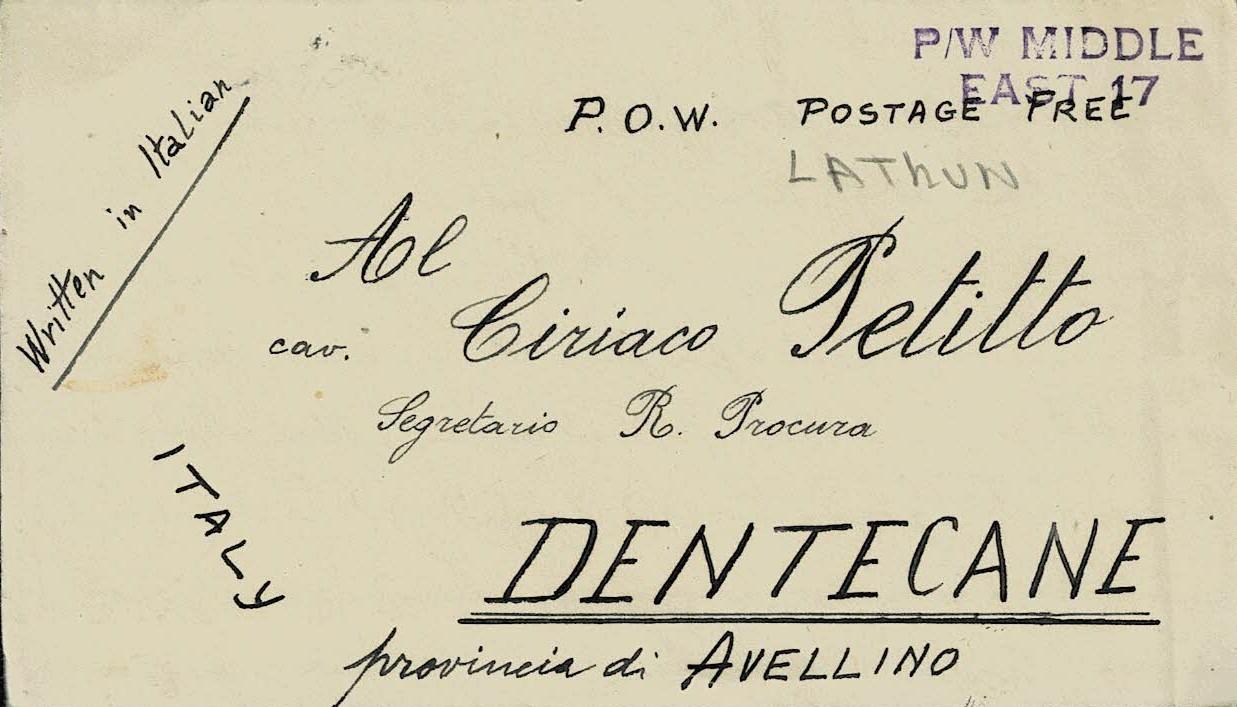 P/W MIDDLE
EAST 17
P.O.W. POSTAGE FREE
LATRUN
Written in Italian
Al
cav. Ciriaco Petitto
Segretario R. Procura
ITALY
DENTECANE
provincia di AVELLINO